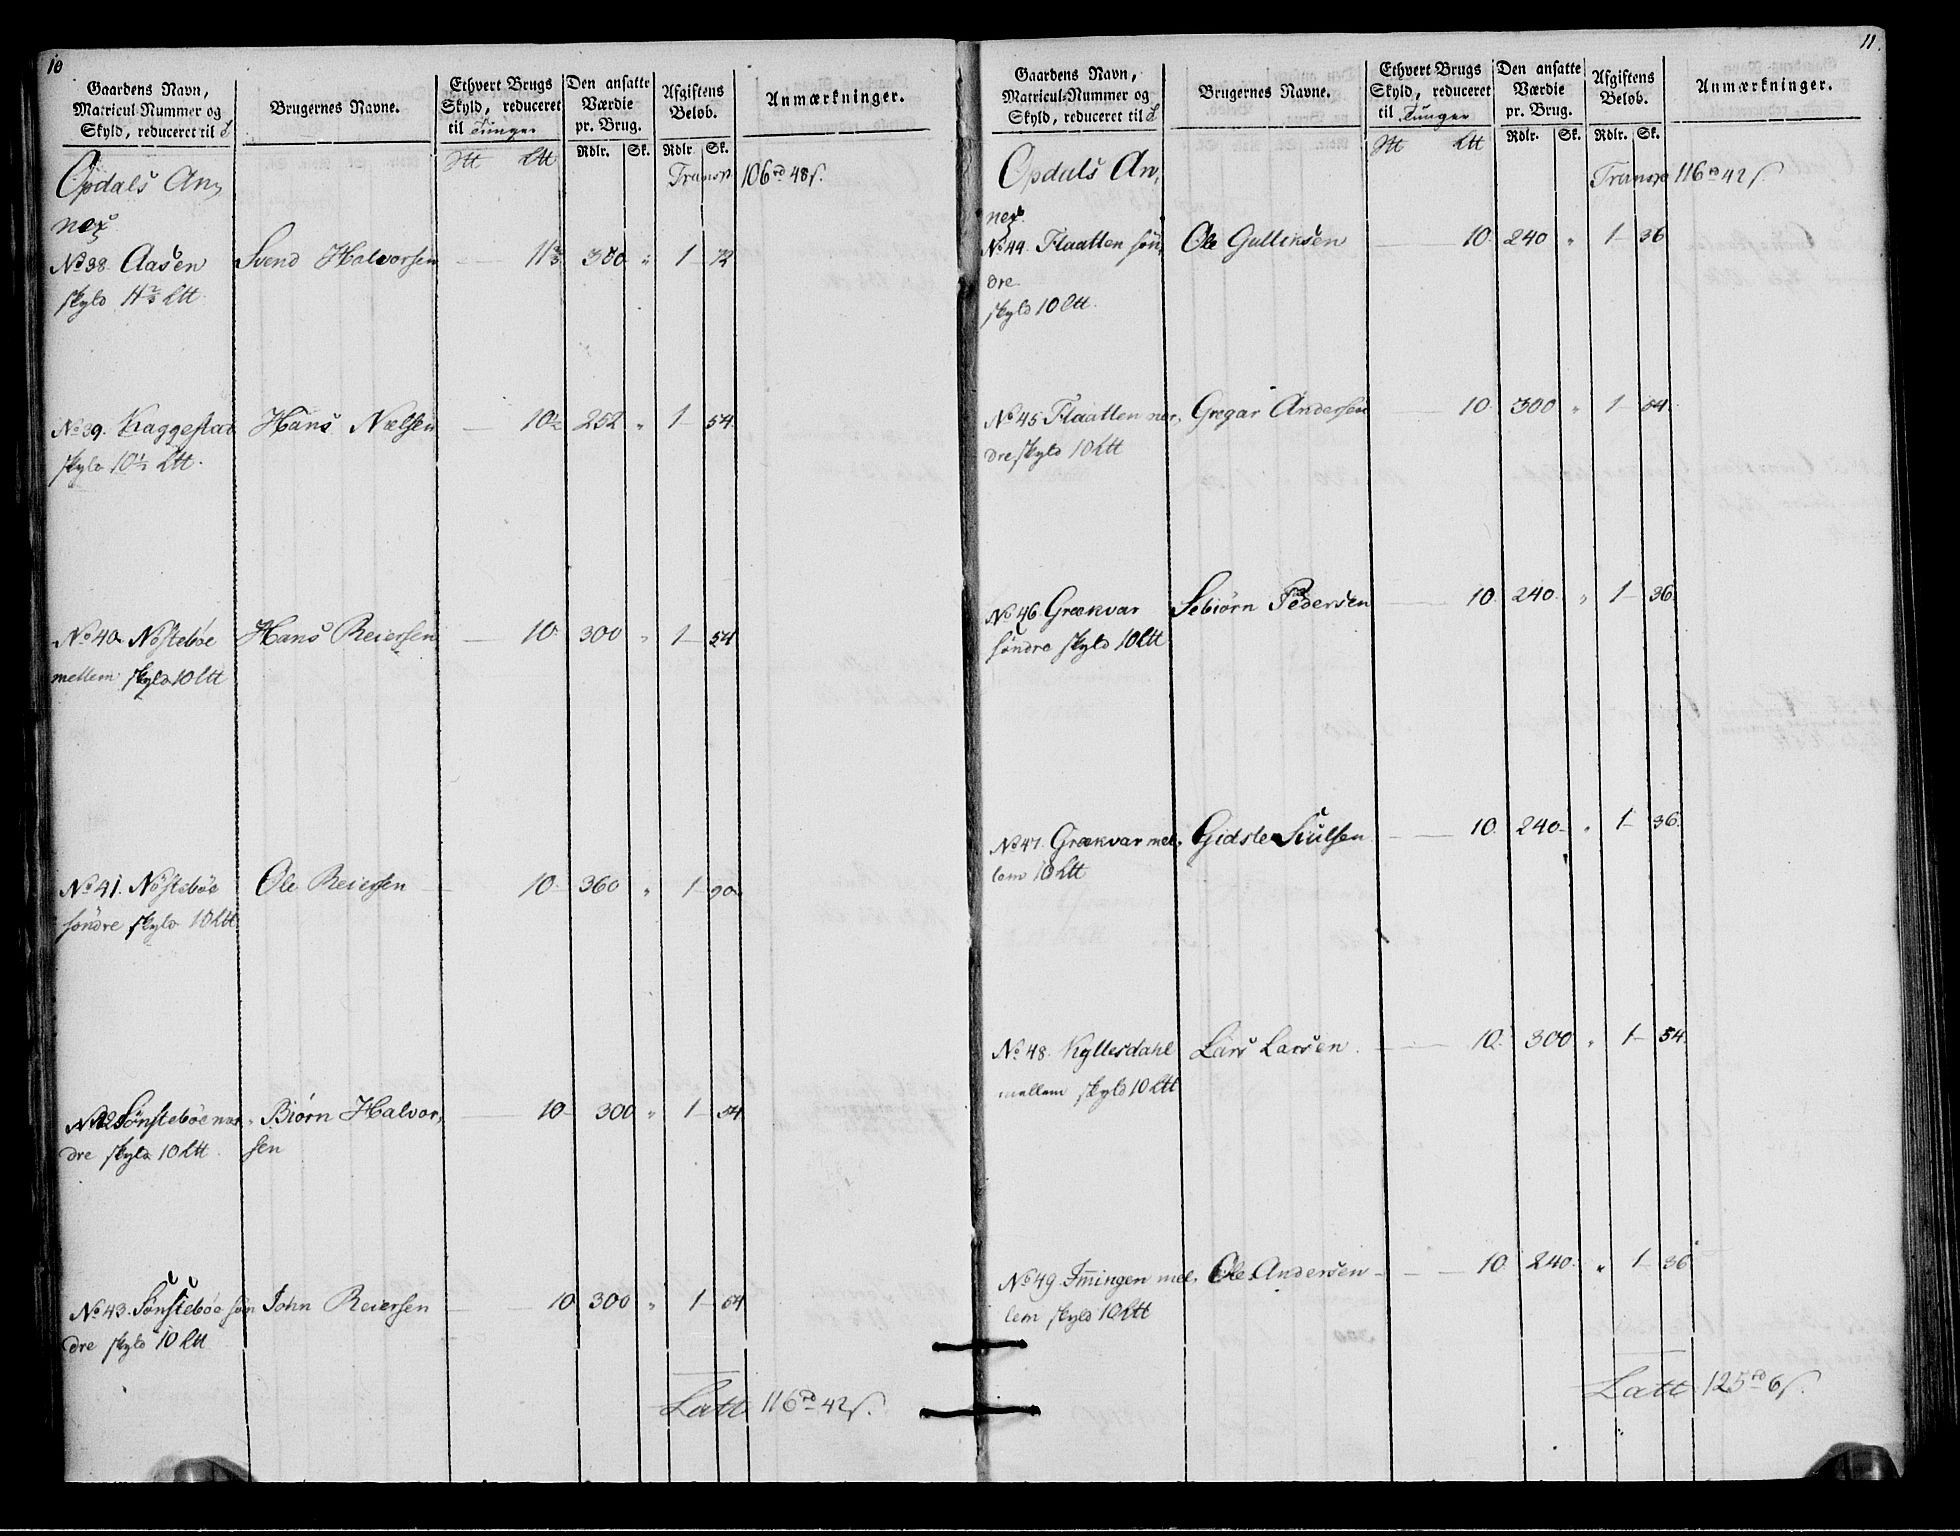 10
Gaardens Navn, Matricul-Nummer og Skyld, reduceret til
Brugernes Navne.
Ethvert Brugs Skyld, reduceret til Tunger
Den ansatte Værdie pr. Brug.
Afgiftens Beløb.
Anmærkninger.
Rdlr. Sk. Rdlr. Sk.
Opdals An,
nex
Transp 106 rd 48 s.
No 38. Aasen Svend Halvorsen 11 2/3 360 " 1 72
skyld 11 2/3 Ltt
No 39. Kaggestad Hans Nælsen 10½ 252 " 1 54
skyld 10½ Ltt.
No 40. Nøstebøe Hans Reiersen 10 300 " 1 54
mellem skyld 10 Ltt
No 41. Nøstebøe Ole Reiersen 10 360 " 1 90
søndre skyld 10 Ltt
No 42 Sønstebøe nor, Biørn Halvor, 10 300 " 1 54
dre skyld 10 Ltt sen
No 43. Sønstebøe søn John Reiersen 10 300 " 1 54
dre skyld 10 Ltt
Latt 116 rd 42 s.
11.
Gaardens Navn, Matricul-Nummer og Skyld, reduceret til
Brugernes Navne.
Ethvert Brugs Skyld, reduceret til Tunger
Den ansatte Værdie pr. Brug.
Afgiftens Beløb.
Anmærkninger.
Rdlr. Sk. Rdlr. Sk.
Opdals An,
nex
Transp 116 rd 42 s.
No 44. Flaatten søn, Ole Gulliksen 10 240 " 1 36
dre
skyld 10 Ltt.
No 45 Flaatten nor, Gregar Andersen 10 300 " 1 54
dre skyld 10 Ltt
No 46. Grækvar Sebiørn Pedersen 10 240 " 1 36
søndre skyld 10 Ltt
No 47. Grækvar mel, Gidsle Kulsen 10 240 " 1 36
lem 10 Ltt
No 48. Kyllesdahl Lars Larsen 10 300 " 1 54
mellem skyld 10 Ltt
No 49. Imingen mel, Ole Andersen 10 240 " 1 36
lem skyld 10 Ltt
Latt 125 rd 6 s.